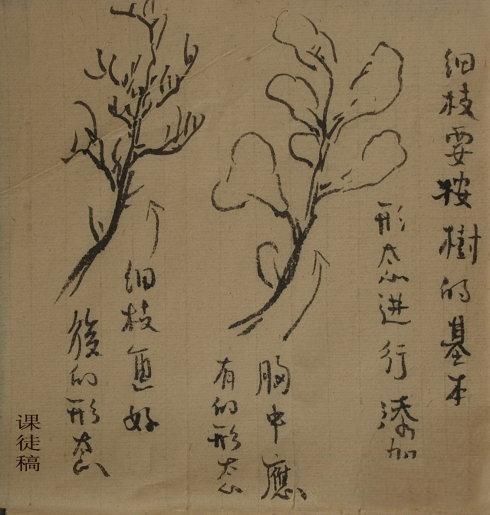 细枝要按樹的基本
形态进行添加
胸中應
有的形态
细枝画好
後的形态
课徒稿